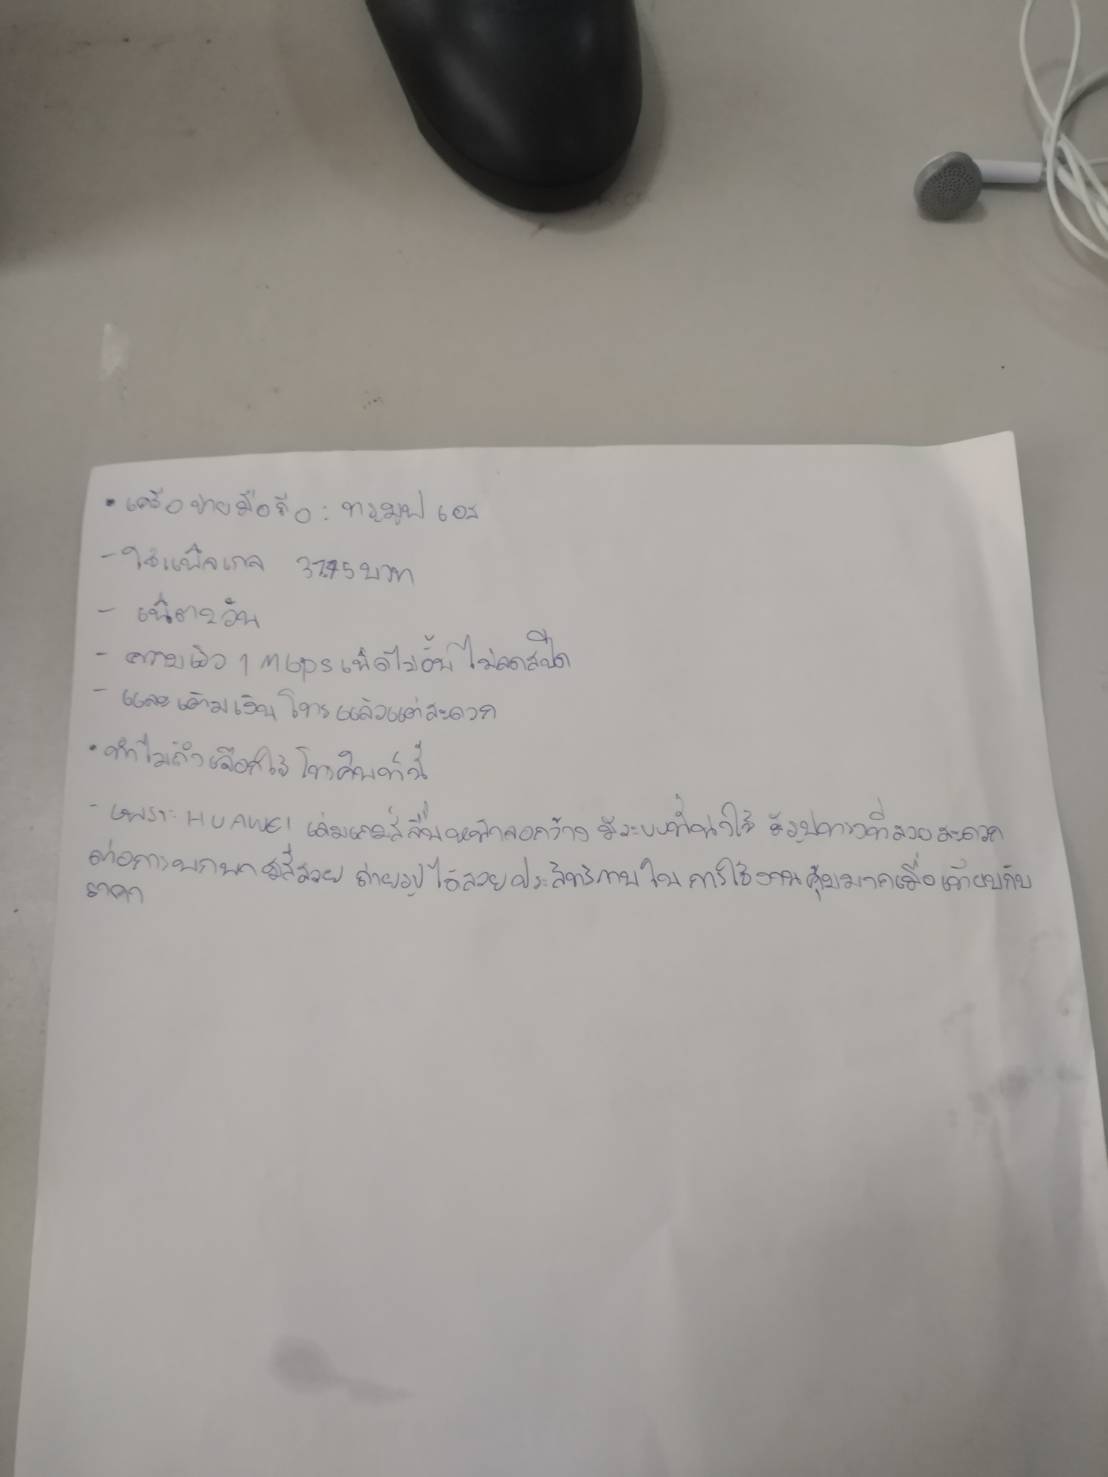 • เครือข่ายมือถือ : ทรูมูฟ เอช
- ใช้แพ็คเกจ 37.45 บาท
- วัน
- ความเร็ว 1 Mbps เน็ตไม่อั้น ไม่ลดสปีด
- และเติมเงินโทรแล้วแต่สะดวก
• ทำไมถึงเลือกใช้โทรศัพท์นี้
- เพราะ HUAWEI เล่นเกมส์ลื่น หน้าจอกว้าง มีระบบที่น่าใช้ มีรูปทรงที่สวย สะดวก
ต่อการพกพา มีสีสวย ถ่ายรูปได้สวย ประสิทธิภาพในการใช้งานคุ้มมากเมื่อเทียบกับ
ราคา